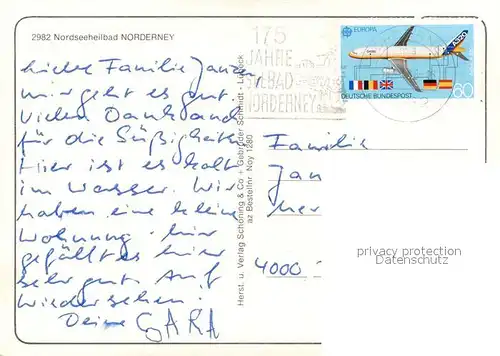 2982 Nordseeheilbad NORDERNEY
Liebe Familie Janzen
mir geht es gut.
Vielen Dank und
für die Süßigkeiten
Hier ist es kalt
im Wasser. Wir
haben eine kleine
Wohnung. hir
gefällt es hier
sehr gut. Auf
wiedersehen!
Deine SARA
Herst. u. Verlag Schöning & Co + Gebrüder Schmidt - Lübeck
az Bestellnr. Noy 1280
175
JAHRE
HEILBAD
NORDERNEY
EUROPA
A320
DEUTSCHE BUNDESPOST
60
Familie
Jan
Her
4000
privacy protection
Datenschutz